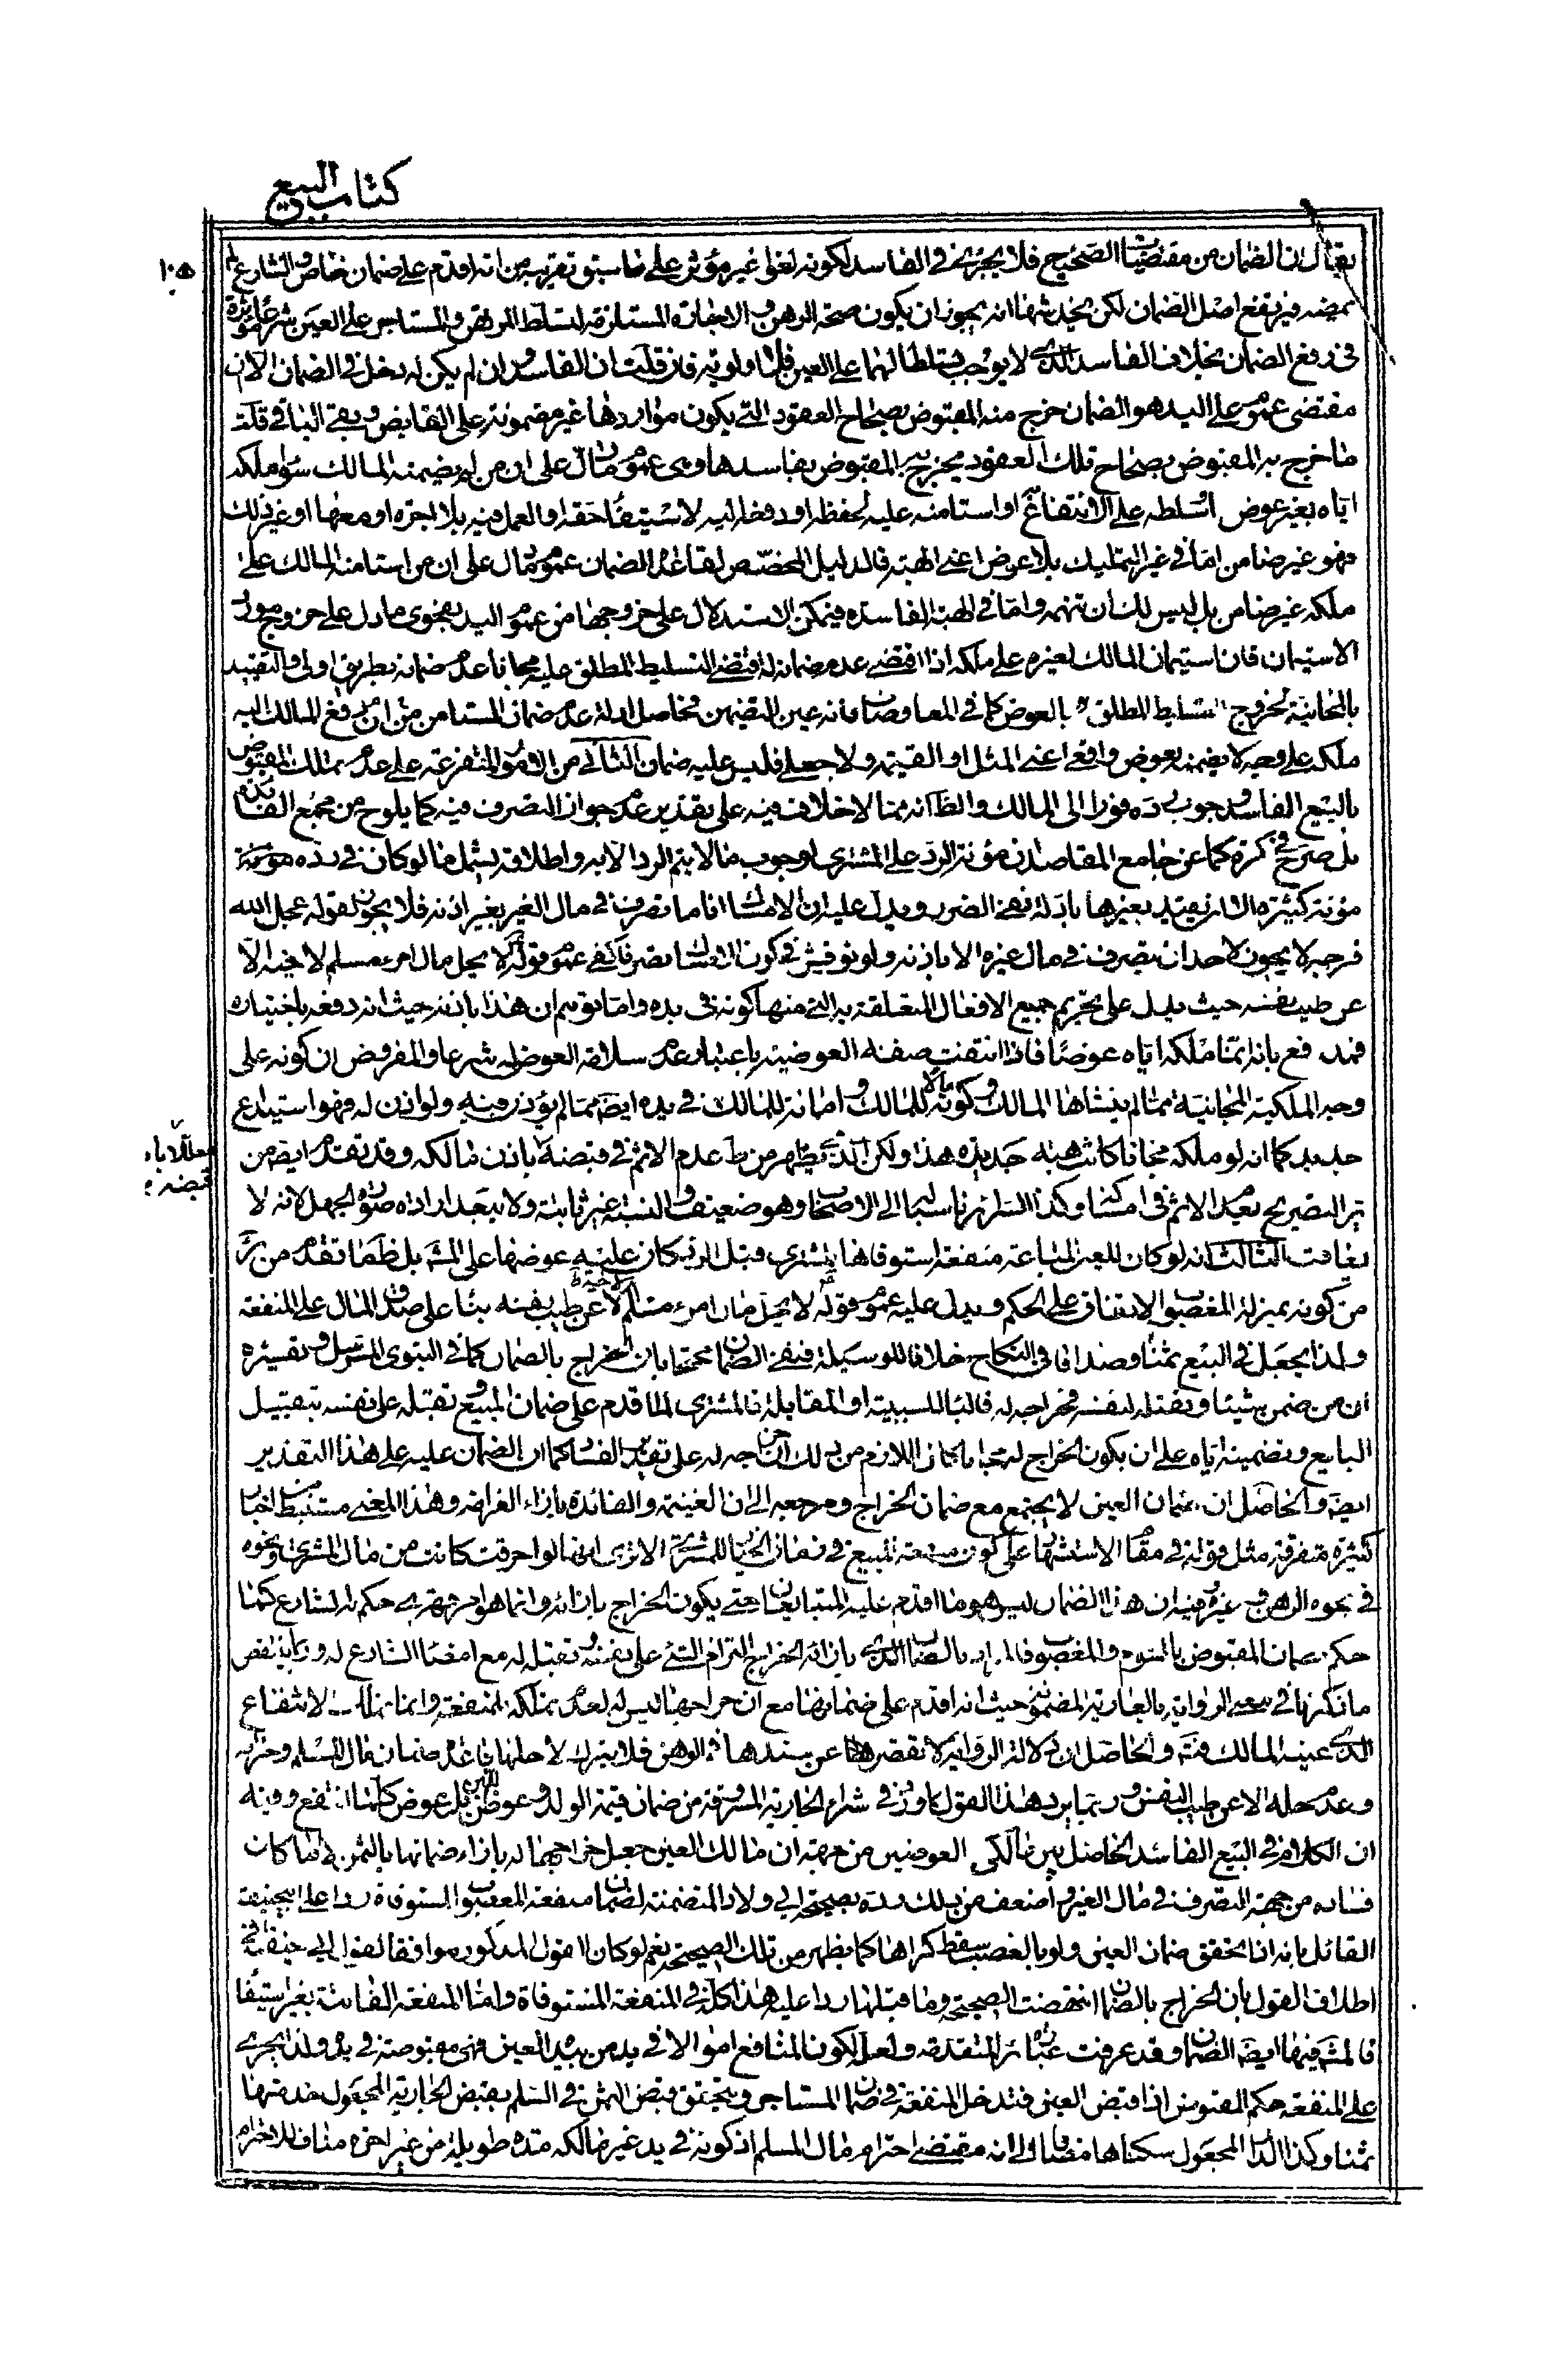 كتاب البيع
١٠٥
يقال ان الضمان من مقتضيات الصحيح فلا يجرى فى الفاسد لكونه لغوا غير مؤثر على ما سبق تقريبه من انه اقدم على ضمان خاص و الشارع لم
يمضه فيرتفع اصل الضمان لكن يخدشها انه يجوز ان يكون صحة الرهن و الاجارة المستلزمة لتسلط المرتهن و المستاجر على العين شرعا مؤثرة
فى رفع الضمان بخلاف الفاسد الذى لا يوجب تسلطا لهما على العين فلا اولوية فان قلت ان الفاسد و ان لم يكن له دخل فى الضمان الا ان
مقتضى عموم على اليد هو الضمان خرج منه المقبوض بصحاح العقود التى يكون مواردها غير مضمونة على القابض و بقى الباقى قلت
ما خرج به المقبوض بصحاح تلك العقود يخرج به المقبوض بفاسدها و هى عموم ما دل على ان من لم يضمنه المالك سواء ملكه
اياه بغير عوض او سلطه على الانتفاع او استامنه عليه لحفظه او دفعه اليه لاستيفاء حقه او العمل فيه بلا اجرة او معها او غير ذلك
فهو غير ضامن اما فى غير التمليك بلا عوض اعنى الهبة فالدليل المخصص لقاعدة الضمان عموم ما دل على ان من استامنه المالك على
ملكه غير ضامن بل ليس لك ان تتهمه و اما فى الهبة الفاسدة فيمكن الاستدلال على خروجها من عموم اليد بفحوى ما دل على خروج مورد
الاستيمان فان استيمان المالك لغيره على ملكه اذا اقتضى عدم ضمانه له اقتضى التسليط المطلق عليه مجانا عدم ضمانه بطريق اولى و التقييد
بالمجانية لخروج التسليط المطلق بالعوض كما فى المعاوضات فانه عين التضمين فحاصل ادلة عدم ضمان المستامن ان دفع المالك اليه
ملكه على وجه لا يضمنه بعوض واقعى اعنى المثل او القيمة و لا جعلى فليس عليه ضمان الثانى من الامور المتفرعة على عدم تملك المقبوض
بالبيع الفاسد وجوب رده فورا الى المالك و الظ انه مما لا خلاف فيه على تقدير عدم جواز التصرف فيه كما يلوح من مجمع الفائدة
بل صرح فى كرة كما عن جامع المقاصد ان مؤنة الرد على المشترى لوجوب ما لا يتم الرد الا به و اطلاقه يشمل ما لو كان فى رده
مؤنة كثيرة الا ان يقيد بغيرها بادلة نفى الضرر و يدل عليه ان الامساك انا ما تصرف فى مال الغير بغير اذنه فلا يجوز لقوله عجل الله
فرجه لا يجوز لاحد ان يتصرف فى مال غيره الا باذنه و لو نوقش فى كون الامساك تصرفا كفى عموم قوله لا يحل مال امرء مسلم لاخيه الا
عن طيب نفسه حيث يدل على تحريم جميع الافعال المتعلقة به التى منها كونه فى يده و اما توهم ان هذا باذنه حيث انه دفعه باختياره
فمندفع بانه انما ملكه اياه عوضا فاذا انتفت صفة العوضية باعتبار عدم سلامة العوض له شرعا و المفروض ان كونه على
وجه الملكية المجانية مما لم ينشاها المالك و كونه مالا للمالك و امانة للمالك فى يده ايض مما لم يؤذن فيه و لو اذن له فهو استيداع
جديد كما انه لو ملكه مجانا كانت هبة جديدة هذا و لكن الذى يظهر من ط عدم الاثم فى قبضه معللا بانه قبضه باذن مالكه و قد تقدم ايض من
ئر التصريح بعدم الاثم فى امساكه و كذا السرائر ناسبا له الى الاصحاب و هو ضعيف و النسبة غير ثابتة و لا يبعد ارادة صورة الجهل لانه لا
يعاقب الثالث انه لو كان للعين المبتاعة منفعة استوفاها المشترى قبل الرد كان عليه عوضها على المشه بل ظ ما تقدم من ئر
من كونه بمنزلة المغصوب الاتفاق على الحكم و يدل عليه عموم قوله لا يحل مال امرء مسلم لاخيه الا عن طيب نفسه بناء على صدق المال على المنفعة
و لذا يجعل فى البيع ثمنا و صداقا فى النكاح خلافا للوسيلة فنفى الضمان محتجا بان الخراج بالضمان كما فى النبوى المرسل و تفسيره
ان من ضمن شيئا و تقبله لنفسه فخراجه له فالباء للسببية او المقابلة فالمشترى لما اقدم على ضمان المبيع و تقبله على نفسه بتقبيل
البايع و تضمينه اياه على ان يكون الخراج له مجانا كان اللازم من ذلك ان خراجه له على تقدير الفساد كما ان الضمان عليه على هذا التقدير
ايضه و الحاصل ان ضمان العين لا يجتمع مع ضمان الخراج و مرجعه الى ان الغنيمة و الفائدة بازاء الغرامة و هذا المعنى مستنبط من اخبار
كثيرة متفرقة مثل قوله فى مقام الاستشهاد على كون منفعة المبيع فى زمان الخيار للمشترى الا ترى انها لو احرقت كانت من مال المشترى و نحوه
فى نحوه الرهن و غيره و فيه ان هذا الضمان ليس هو ما اقدم عليه المتبايعان حتى يكون الخراج بازائه و انما هو امر قهرى حكم به الشارع كما
حكم بضمان المقبوض بالسوم و المغصوب فالمراد بالضمان الذى بازائه الخراج التزام الشئ على نفسه و تقبله له مع امضاء الشارع له و ربما ينتقض
ما ذكرنا فى معنى الرواية بالعارية المضمونة حيث انه اقدم على ضمانها مع ان خراجها ليس له لعدم تملكه للمنفعة و انما تملك الانتفاع
الذى عينه المالك فتم و الحاصل ان دلالة الرواية لا تقصر عن سندها فى الوهن فلا يترك لاجلها قاعدة ضمان مال المسلم و احترامه
و عدم حله الا عن طيب النفس و ربما يرد هذا القول بما ورد فى شراء الجارية المسروقة من ضمان قيمة الولد و عوض اللبن بل عوض كلما انتفع و فيه
ان الكلام فى البيع الفاسد الحاصل بين مالكى العوضين من جهة ان مالك العين جعل خراجها له بازاء ضمانها بالثمن لا ما كان
فساده من جهة التصرف فى مال الغير و اضعف من ذلك رده بصحيحة ابى ولاد المتضمنة لضمان منفعة المغصوب المستوفاة ردا على ابيحنيفة
القائل بانه اذا تحقق ضمان العين و لو بالغصب سقط كراها كما يظهر من تلك الصحيحة نعم لو كان القول المذكور موافقا لقول ابى حنيفة فى
اطلاق القول بان الخراج بالضمان انتهضت الصحيحة و ما قبلها ردا عليه هذا كله فى المنفعة المستوفاة و اما المنفعة الفائتة بغير استيفاء
فالمشه فيها ايضه الضمان و قد عرفت عبارة ئر المتقدمة و لعله لكون المنافع اموالا فى يد من بيده العين فهى مقبوضة فى يده و لذا يجرى
على المنفعة حكم المقبوض اذا قبض العين فتدخل المنفعة فى ضمان المستاجر و يتحقق قبض الثمن فى السلم بقبض الجارية المجعول خدمتها
ثمنا و كذا الدار المجعول سكناها مضافا الى انه مقتضى احترام مال المسلم اذ كونه فى يد غير مالكه مدة طويلة من غير اجرة مناف للاحترام